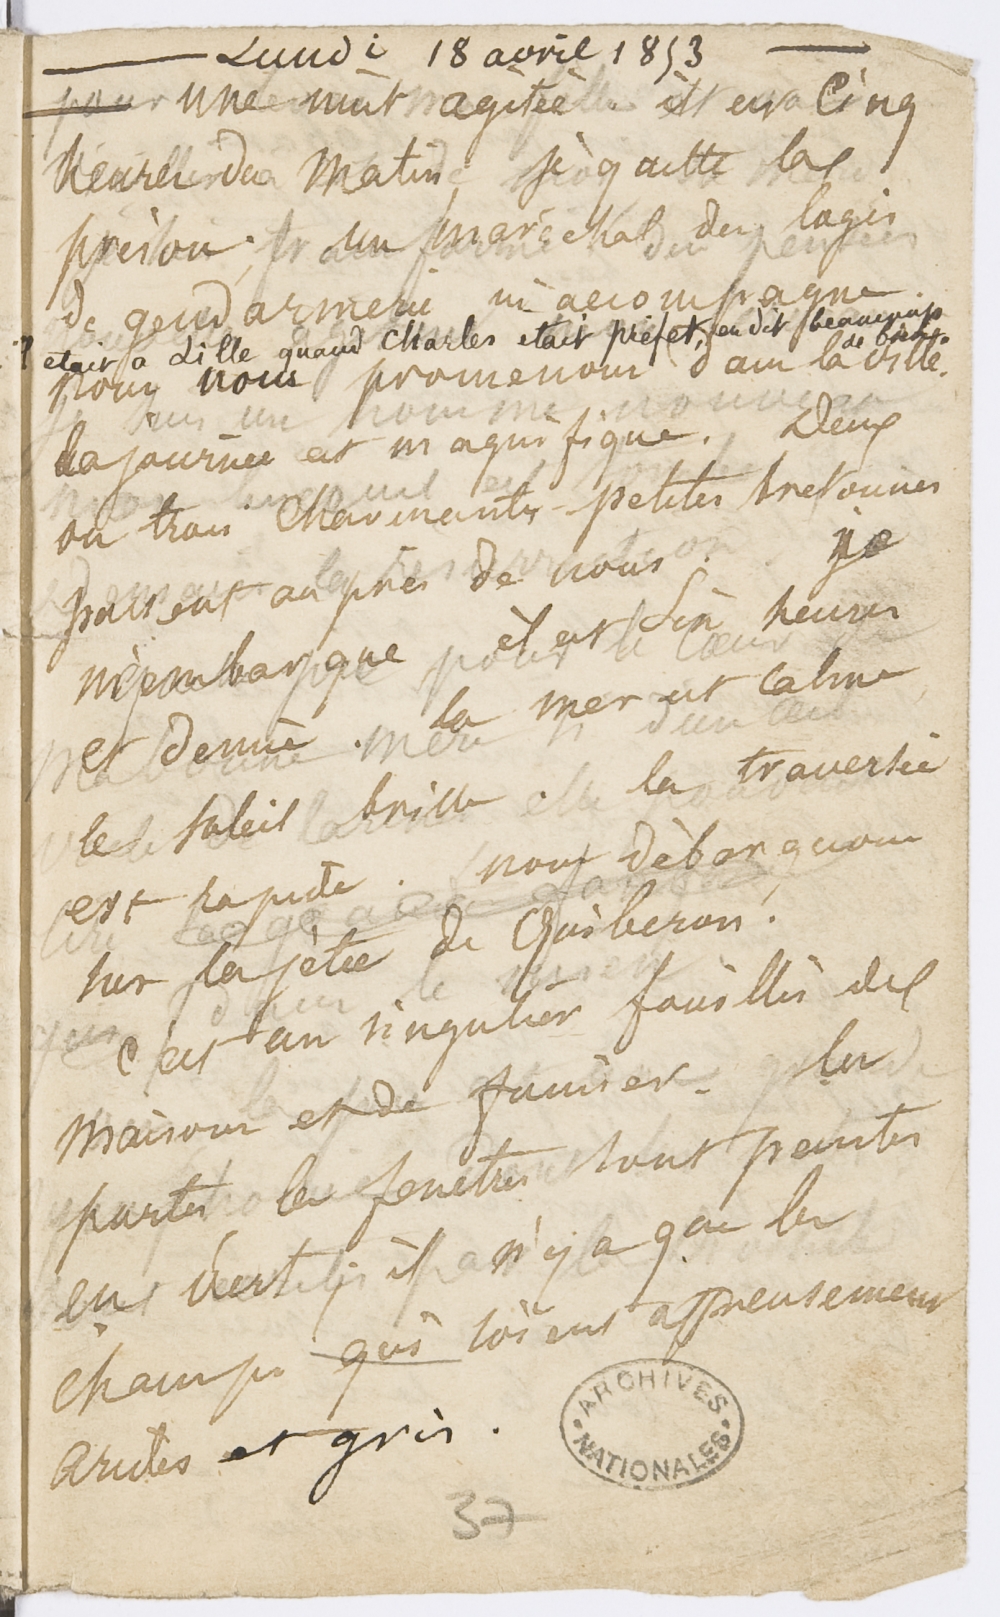 Lundi 18 avril 1853
une nuit agitée il est Cinq
heures du Matin, je quitte la
prison. un maréchal des logis
de gendarmerie m'accompagne
il etait a Lille quand Charles etait prefet, en dit beaucoup
de bien.
nous promenons dans la ville.
la journée est magnifique. Deux
ou trois Charmantes petites bretonnes
passent auprès de nous. je
m'embarque il est six heures
et demie. la mer est calme
le soleil brille. la traversée
est rapide. nous débarquons
sur la jetée de Quiberon.
C'est un singulier fouillis de
maisons et de fumier. les
portes les fenêtres sont peintes
en vert, il n'y a que les
champs qui soient affreusement
arides et gris.
ARCHIVES
NATIONALES
37